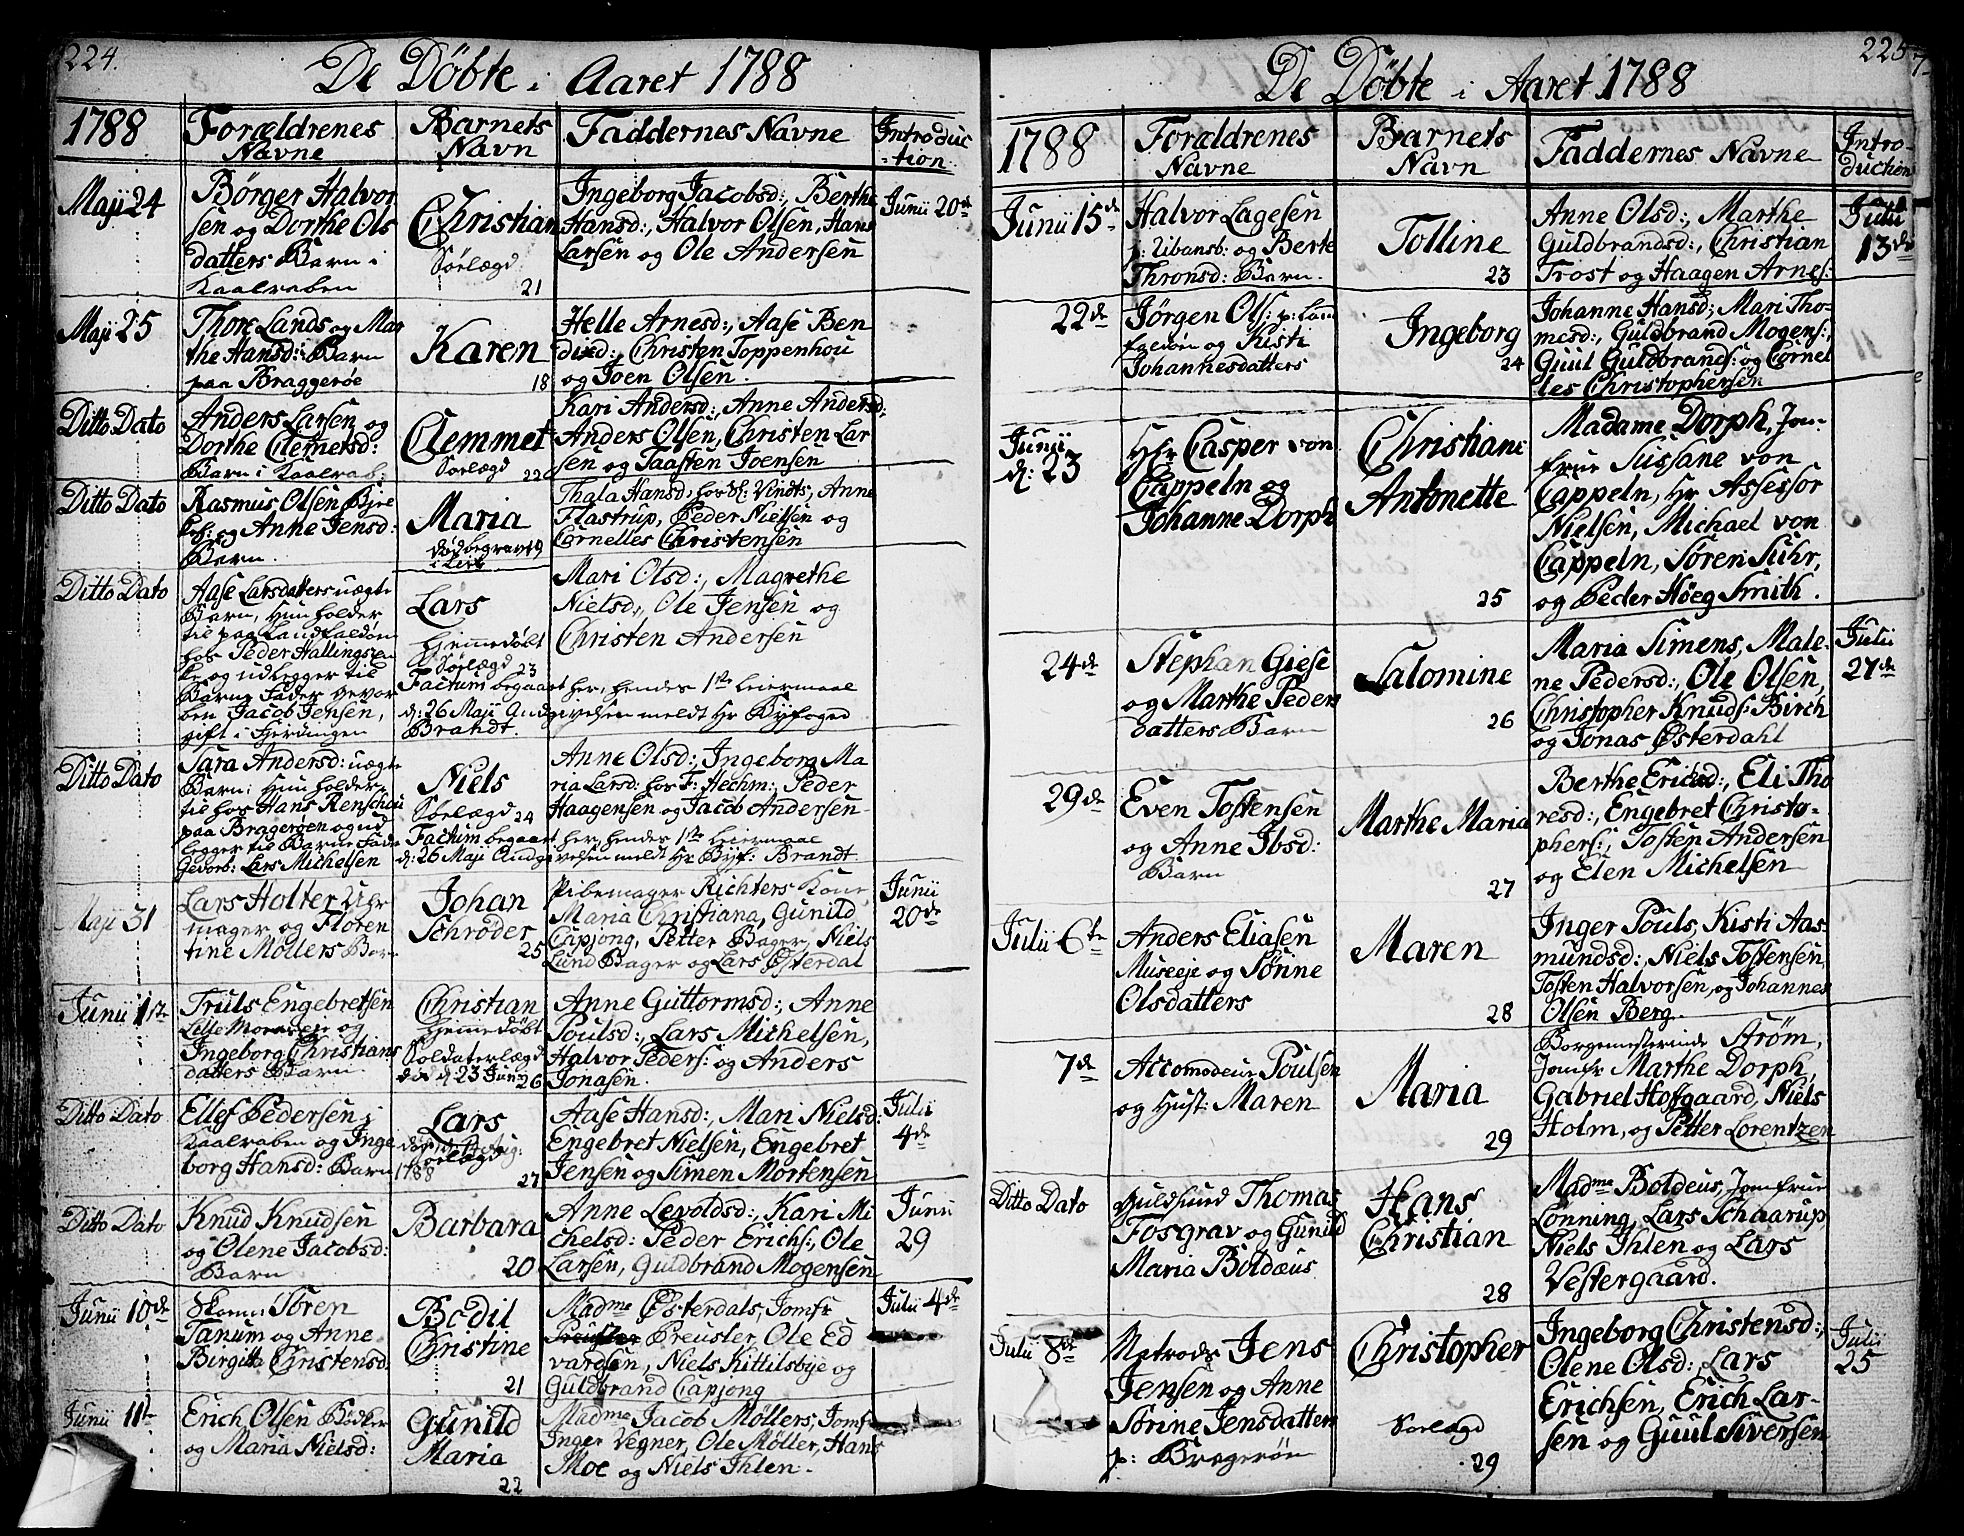 224.
De Döbte i Aaret 1788
1788
Forældrenes
Navne
Barnets
Navn
Faddernes Navne
Introduc
-tion.
Maji 24
Börger Halvor
sen og Dorthe Ols
datters Barn i
Kaalraben
Christian
Söelægd
21
Ingeborg Jacobsd:, Berthe
Hansd:, Halvor Olsen, Hans
Larsen og Ole Andersen
Junii 20de
Maji 25
Thore Lands og Mar
the Hansd: Barn
paa Braggerøe
Karen
18
Helle Arnesd:, Aase Ben
dixd:, Christen Toppenhou
og Joen Olsen.
Ditto Dato
Anders Larsen og
Dorthe Clemetsd:
Barn i Kaalrab:
Clemmet
Söelægd
22
Kari Andersd:, Anne Andersd:
Anders Olsen, Christen Lar
sen og Taasten Joensen
Ditto Dato
Rasmus Olsen
og Anne Jensd:
Barn.
Maria
Thala Hansd: hos Vindts, Anne
Flastrup, Peder Nielsen og
Cornelles Christensen
Ditto Dato
Aase Larsdatters uægte
Barn, Hun holder
til paa Landfaldöen
hos Peder Hallingsen
og udlegger til
Barne Fader gevor
ben Jacob Jensen,
gift i Fjerdingen
Lars
Hjemmedöbt
Söelægd
23
Mari Olsd:, Magrethe
Nielsd:, Ole Jensen og
Christen Andersen
Factum begaaet her, hendes 1ste Leiermaal
d: 26 Maji Angivelsen meldt Hr Byfoged
Brandt.
Ditto Dato
Sara Andersd: uægte
Barn; Hun holder
til hos Hans Renschou
paa Bragerøen og ud
legger til Barne Fader
Gevorb: Lars Michelsen
Niels
Söelægd 24
Anne Olsd:, Ingeborg Ma
ria Larsd: hos F: Hechm:, Peder
Haagensen og Jacob Andersen
Factum begaaet her, hendes 1ste Leiermaal
d: 26 Maji Angivelsen meldt Hr Byf: Brandt.
Maji 31
Lars Holter Uhr
mager og Floren
tine Möllers Barn
Johan
Schröder
25
Pibemager Richters Kone
Maria Christiana, Gunild
Capjong, Petter Bager, Niels
Lund Bager og Lars Østerdal
Junii
20de
Junii 1ste
Truls Engebretsen
og
Ingeborg Christians
datters Barn
Christian
Hjemmedöbt
Soldaterlægd
död d: 23 Junii 26
Anne Guttormsd:, Anne
Poulsd:, Lars Michelsen,
Halvor Peders: og Anders
Jonasen.
Ditto Dato
Ellef Pedersen i
Kaalraben og Inge
borg Hansd: Barn
Lars
Söelægd
1788
27
Aase Hansd:, Mari Nielsd:
Engebret Nielsen, Engebret
Jensen og Simen Mortensen
Julii
4de
Ditto Dato
Knud Knudsen
og Olene Jacobsd:
Barn
Barbara
20
Anne Levoldsd:, Kari Mi
chelsd: Peder Erichs:, Ole
Larsen, Guldbrand Mogensen
Junii
29
Junii 10de
Skom: Sören
Tanum og Anne
Birgitta Christensd:
Bodil
Christine
21
Madme Østerdals, Jomfr
Preusler, Ole Ed
vardsen, Niels Kittilsbye og
Guldbrand Capjong
Julii 4de
Junii 11te
Erich Olsen Bödker
og Maria Nielsd:
Gunild
Maria
22
Madme Jacob Möllers, Jomf
Inger Vegner, Ole Möller, Hans
Moe og Niels Ihlen.
225
De Döbte i Aaret 1788
1788
Forældrenes
Navne
Barnets
Navn
Faddernes Navne
Intro-
duction
Junii 15de
Halvor Lagesen
p: Ubansb: og Berte
Thronsd: Barn.
Tolline
23
Anne Olsd:, Marthe
Guldbrandsd:, Christian
Trost og Haagen Arnes:
Julii
13de
22de
Jörgen Ols: p: Land
faldöen og Kisti
Johannesdatters
Ingeborg
24
Johanne Hansd:, Mari Tho-
mesd:, Guldbrand Mogens:,
Guul Guldbrands: og Cornel
les Christophersen
Junii
d: 23
Hr Casper von
Cappeln og
Johanne Dorph
Christiane
Antonette
25
Madame Dorph, Jom-
frue Sussane von
Cappeln, Hr Assessor
Nielsen, Michael von
Cappeln, Sören Suhr,
og Peder Höeg Smith.
24de
Stephan Giese
og Marthe Peders
datters Barn
Salomine
26
Maria Simens, Male-
ne Pedersd:, Ole Olsen,
Christopher Knuds: Birch
og Jonas Østerdahl
Julii
27de
29de
Even Tostensen
og Anne Ibsd:
Barn
Marthe Maria
27
Berthe Ericsd:, Eli Tho
resd:, Engebret Christo-
phers:, Tosten Andersen
og Elen Michelsen
Julii 6te
Anders Eliasen
Museeje og Sönne
Olsdatters
Maren
28
Inger Pouls, Kisti Aas-
mundsd:, Niels Tostensen,
Tosten Halvorsen, og Johannes
Olsen Berg.
7de
Accomodeur Poulsen
og Hust: Maren
Maria
29
Borgemesterinde Ström,
Jomfr Marthe Dorph,
Gabriel Hofgaard, Niels
Holm, og Petter Lorentzen
Ditto Dato
Guldsmed Thomas
Fosgrav og Gunild
Maria Boldæus
Hans
Christian
28
Madme Boldeus, Jomfrue
Lönning, Lars Schaarup,
Niels Ihlen og Lars
Vestergaard.
Julii 8de
Matrods Jens
Jensen og Anne
Sörine Jensdatters
p: Bragerøen
Christopher
Söelægd
29
Ingeborg Christensd:,
Olene Olsd: Lars
Erichsen, Erich Lar-
sen og Guul Siversen
Julii
25